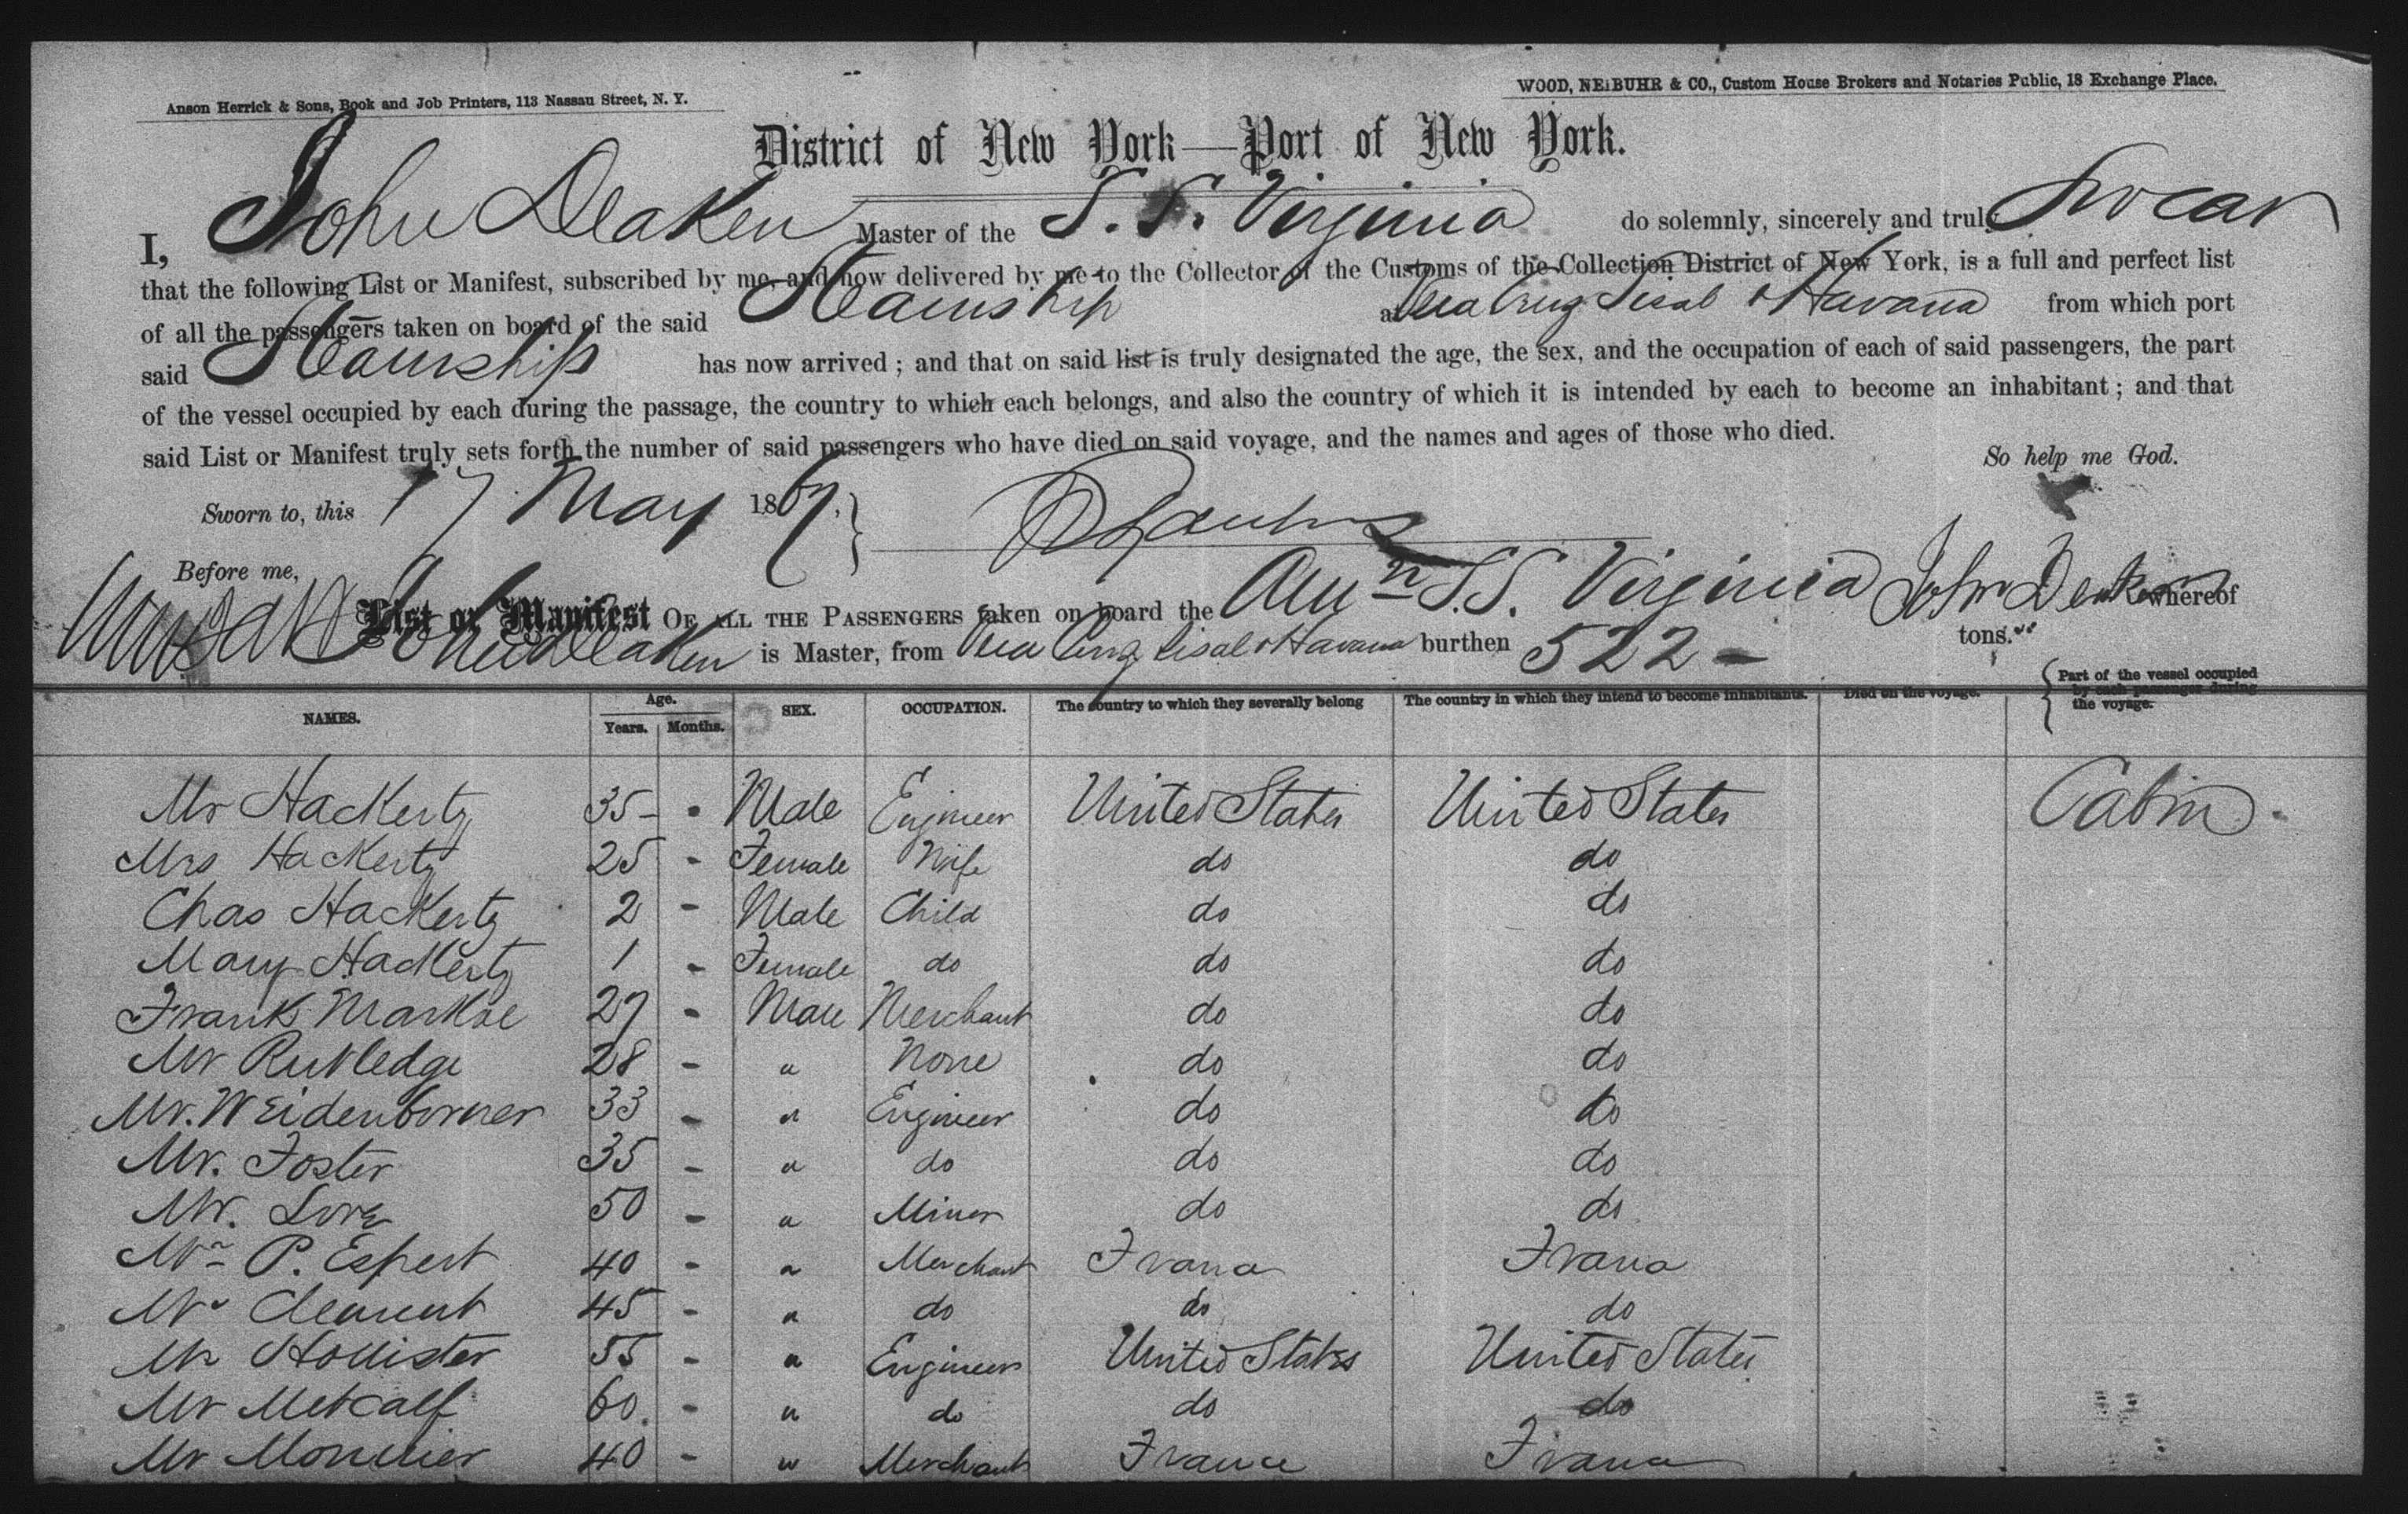 Anson Herrick & Sons, Book and Job Printers, 113 Nassau Street, N. Y.
WOOD, NEIBUHR & CO., Custom House Brokers and Notaries Public, 18 Exchange Place.
District of New York—Port of New York.
I, John Deaken Master of the S. S. Virginia do solemnly, sincerely and truly Swear
that the following List or Manifest, subscribed by me, and now delivered by me to the Collector of the Customs of the Collection District of New York, is a full and perfect list
of all the passengers taken on board of the said Steamship at Vera Cruz Sisal & Havana from which port
said Steamship has now arrived ; and that on said list is truly designated the age, the sex, and the occupation of each of said passengers, the part
of the vessel occupied by each during the passage, the country to which each belongs, and also the country of which it is intended by each to become an inhabitant ; and that
said List or Manifest truly sets forth the number of said passengers who have died on said voyage, and the names and ages of those who died.
So help me God.
Sworn to, this 17 May 1867,
Before me,
List or Manifest OF ALL THE PASSENGERS taken on board the Amn S.S. Virginia John Deaken whereof
John Deaken is Master, from Vera Cruz Sisal & Havana burthen 522 — tons.
NAMES. Age. Years. Months. SEX. OCCUPATION. The country to which they severally belong The country in which they intend to become inhabitants. Died on the voyage. Part of the vessel occupied by each passenger during the voyage.
Mr Hackertz 35 - Male Engineer United States United States Cabin.
Mrs Hackertz 25 - Female Wife do do
Chas Hackertz 2 - Male Child do do
Mary Hackertz 1 - Female do do do
Frank Markoe 27 - Male Merchant do do
Mr Rutledge 28 - " None do do
Mr. Weidenborner 33 - " Engineer do do
Mr. Foster 35 - " do do do
Mr. Love 50 - " Miner do do
Mr P. Espert 40 - " Merchant France France
Mr Clement 45 - " do do do
Mr Hollister 55 - " Engineer United States United States
Mr Metcalf 60 - " do do do
Mr Monnier 40 - " Merchant France France